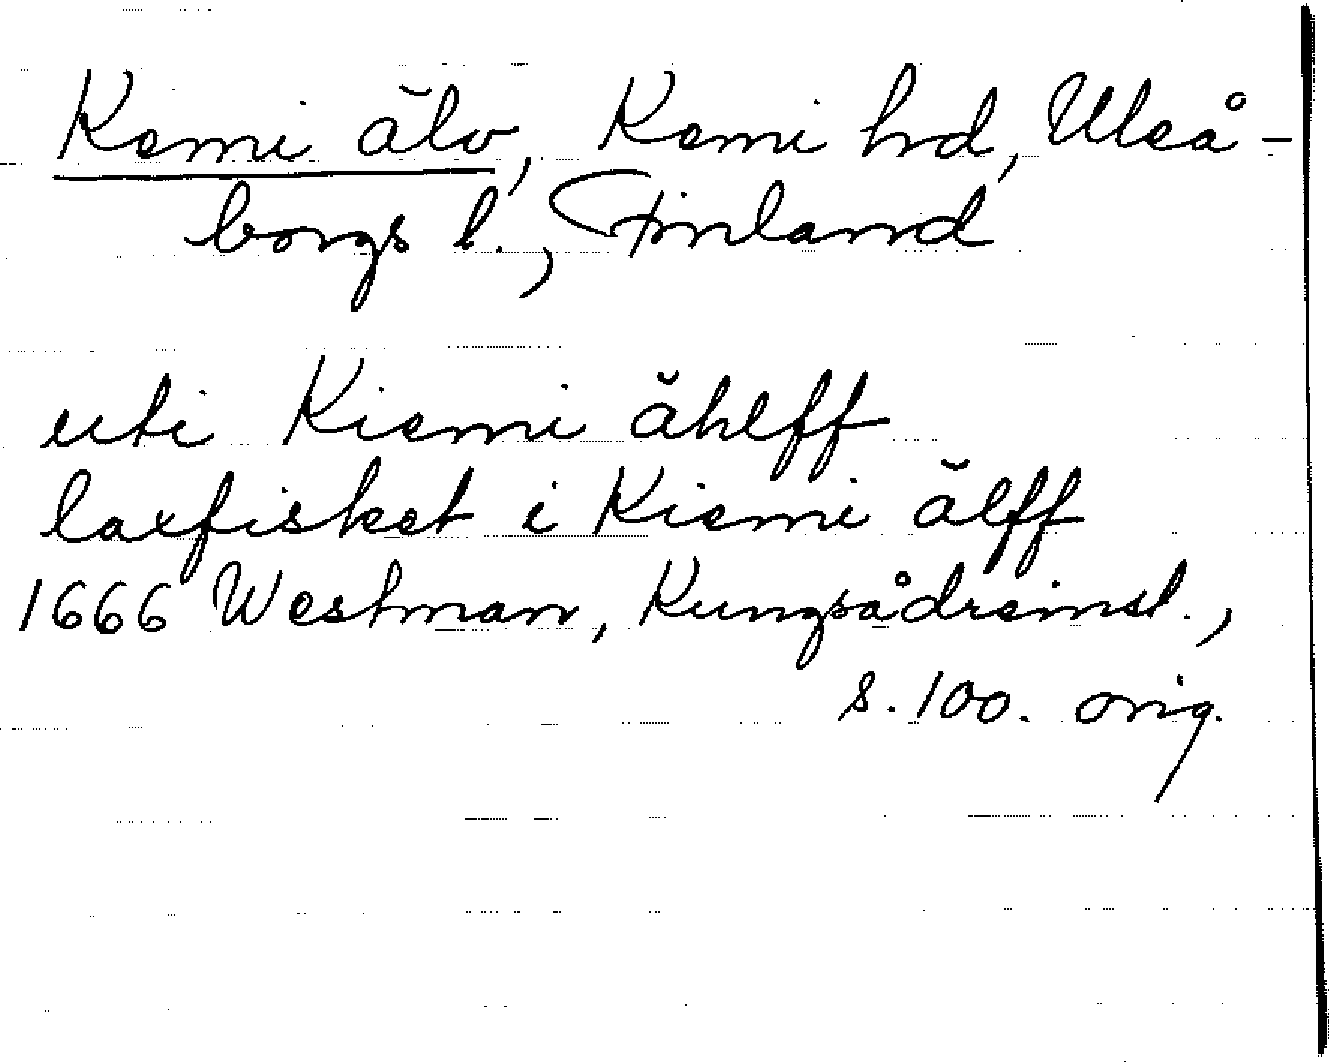 Kemi älv, Kemi hd, Uleå-
borgs l., Finland
uti Kiemi ählff
laxfisket i Kiemi älff
1666 Westman, Kungsådreinst.,
s. 100. orig.